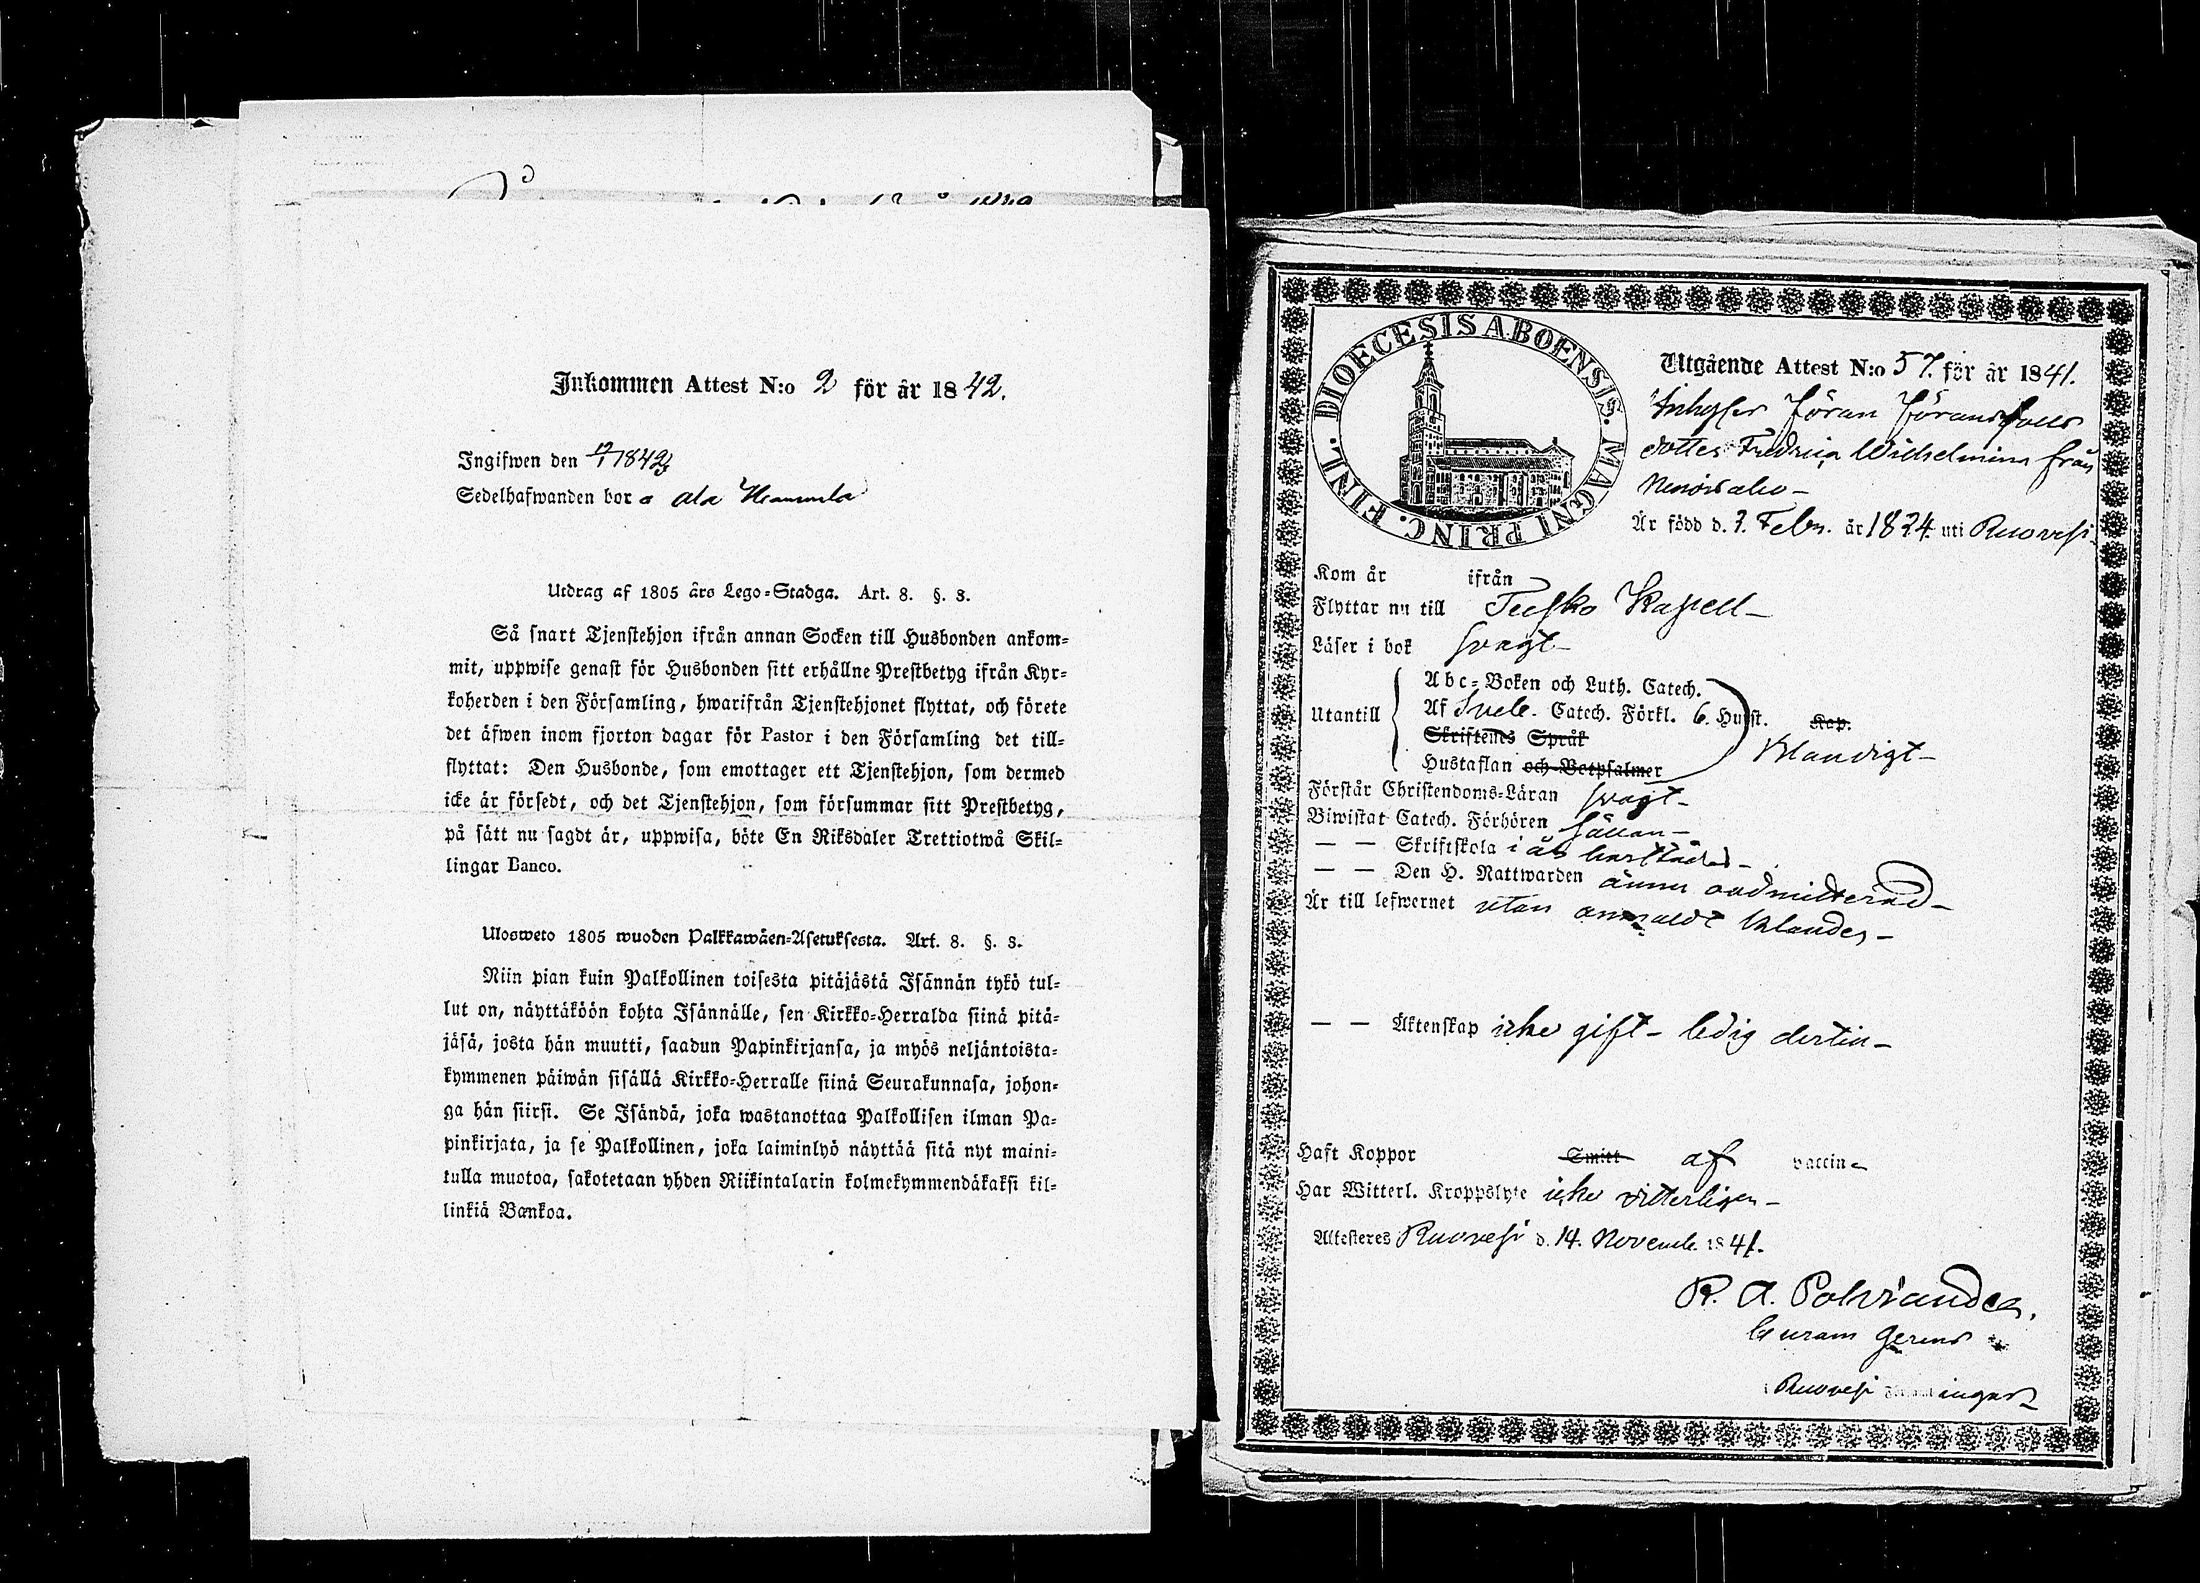 Inkommen Attest N:o 2 för år 1842.
Ingifwen den 1842
Sedelhafwanden bor å Ala
Utdrag af 1805 års Lego-Stadga. Art. 8. §. 3.
Så snart Tjenstehjon ifrån annan Socken till Husbonden ankom-
mit, uppwise genast för Husbonden sitt erhållne Prestbetyg ifrån Kyr-
koherden i den Församling, hwarifrån Tjenstehjonet flyttat, och förete
det äfwen inom fjorton dagar för Pastor i den Församling det till-
flyttat: Den Husbonde, som emottager ett Tjenstehjon, som dermed
icke är försedt, och det Tjenstehjon, som försummar sitt Prestbetyg,
på sätt nu sagdt är, uppwisa, böte En Riksdaler Trettiotwå Skil-
lingar Banco.
Ulosweto 1805 wuoden Palkkawäen-Asetuksesta. Art. 8. §. 3.
Niin pian kuin Palkollinen toisesta pitäjästä Isännän tykö tul-
lut on, näyttäköön kohta Isännälle, sen Kirkko-Herralda siinä pitä-
jäsä, josta hän muutti, saadun Papinkirjansa, ja myös neljäntoista-
kymmenen päiwän sisällä Kirkko-Herralle siinä Seurakunnasa, johon-
ga hän siirsi. Se Isändä, joka wastanottaa Palkollisen ilman Pa-
pinkirjata, ja se Palkollinen, joka laiminlyö näyttää sitä nyt maini-
tulla muotoa, sakotetaan yhden Riikintalarin kolmekymmendäkaksi kil-
linkiä Bankoa.
DIOECESIS ABOENSIS. MAGNI PRINC. FINL.
Utgående Attest N:o 57. för år 1841.
Inhyses Jöran Jöransson
dotter Fredrica Wilhelmina från
Är född d. 7. Febr. år 1824 uti Ruovesi
Kom år ifrån
Flyttar nu till Teisko Kapell
Läser i bok svagt
Utantill
Abc-Boken och Luth. Catech.
Af Sveb. Catech. Förkl. 6. Huft. Kap.
Skriftenes Språk
Hustaflan och Botpsalmer
klandrigt
Förstår Christendoms-Läran svagt
Biwistat Catech. Förhören sällan
— — Skriftskola i år härstädes
— — Den H. Nattwarden ännu oadmitterad
Är till lefwernet utan anmäldt klander
— — Äktenskap icke gift - ledig dertill
Haft Koppor Smitt af vaccin
Har Witterl. Kroppslyte icke vitterligen
Attesteres Ruovesi d. 14. Novemb. 1841.
R. A. Polviander.
Curam gerens
i Ruovesi Församlingar